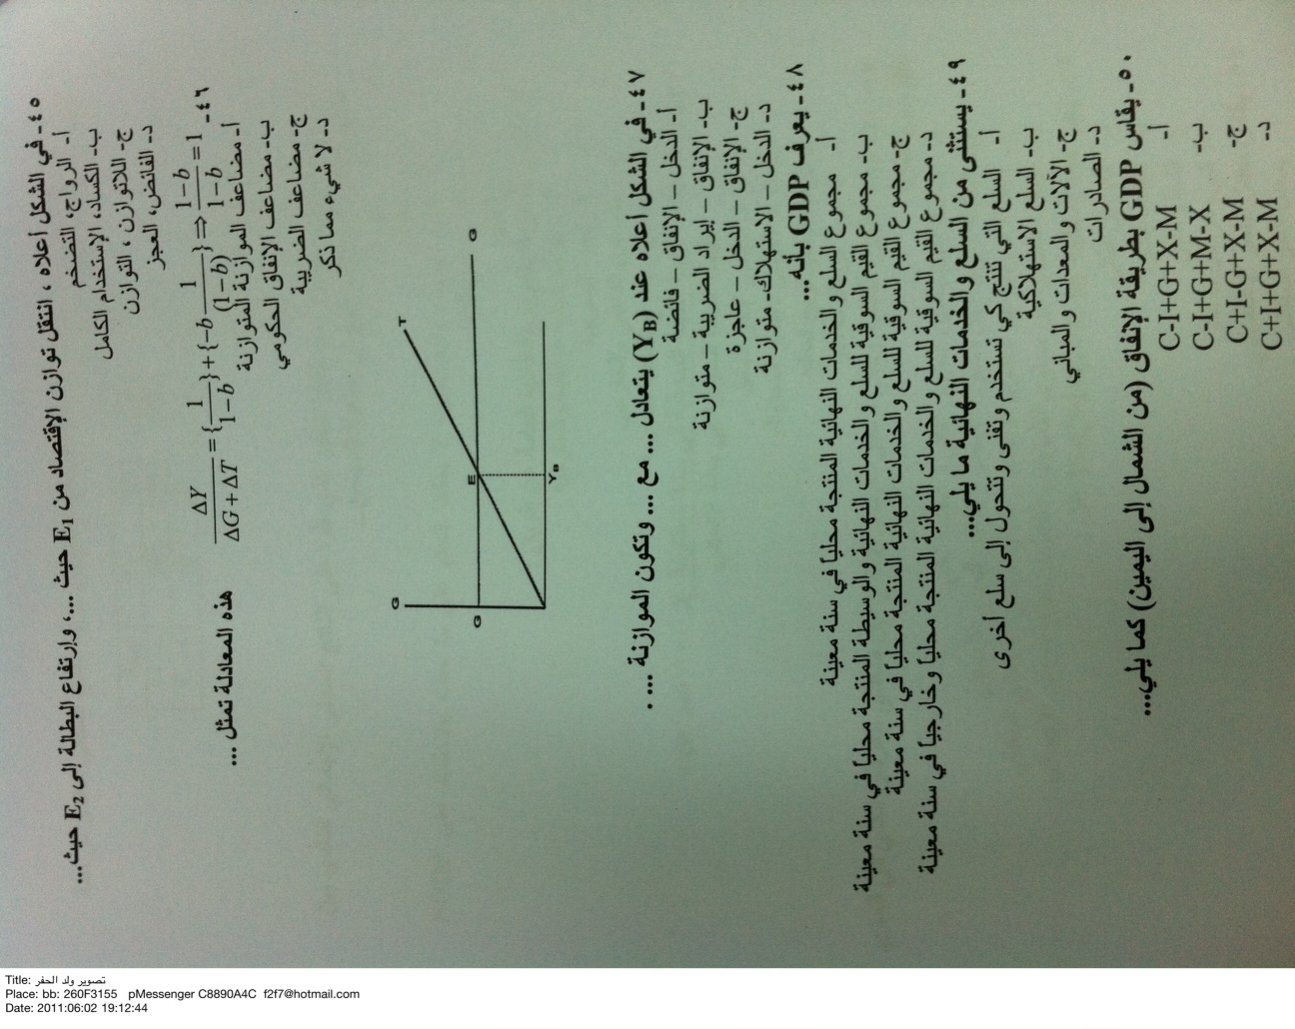 ٤٥- في الشكل أعلاه ، انتقل توازن الإقتصاد من E1 حيث ...، وإرتفاع البطالة إلى E2 حيث...
أ- الرواج، التضخم
ب- الكساد، الإستخدام الكامل
ج- اللاتوازن ، التوازن
د- الفائض، العجز
٤٦- ΔY / (ΔG + ΔT) = {1/(1-b)} + {-b 1/(1-b)} ⇒ (1-b)/(1-b) = 1 هذه المعادلة تمثل ...
أ- مضاعف الموازنة المتوازنة
ب- مضاعف الإنفاق الحكومي
ج- مضاعف الضريبة
د- لا شيء مما ذكر
G
T
G
E
G
YB
٤٧- في الشكل أعلاه عند (YB) يتعادل ... مع ... وتكون الموازنة ... .
أ- الدخل – الإنفاق – فائضة
ب- الإنفاق – إيراد الضريبية – متوازنة
ج- الإنفاق – الدخل – عاجزة
د- الدخل – الاستهلاك- متوازنة
٤٨- يعرف GDP بأنه...
أ- مجموع السلع والخدمات النهائية المنتجة محلياً في سنة معينة
ب- مجموع القيم السوقية للسلع والخدمات النهائية والوسيطة المنتجة محلياً في سنة معينة
ج- مجموع القيم السوقية للسلع والخدمات النهائية المنتجة محلياً في سنة معينة
د- مجموع القيم السوقية للسلع والخدمات النهائية المنتجة محلياً وخارجياً في سنة معينة
٤٩- يستثنى من السلع والخدمات النهائية ما يلي...
أ- السلع التي تنتج كي تستخدم وتفنى وتتحول إلى سلع أخرى
ب- السلع الاستهلاكية
ج- الآلات والمعدات والمباني
د- الصادرات
٥٠- يقاس GDP بطريقة الإنفاق (من الشمال إلى اليمين) كما يلي...
أ- C-I+G+X-M
ب- C-I+G+M-X
ج- C+I-G+X-M
د- C+I+G+X-M
Title: تصوير ولد الحفر
Place: bb: 260F3155 pMessenger C8890A4C f2f7@hotmail.com
Date: 2011:06:02 19:12:44